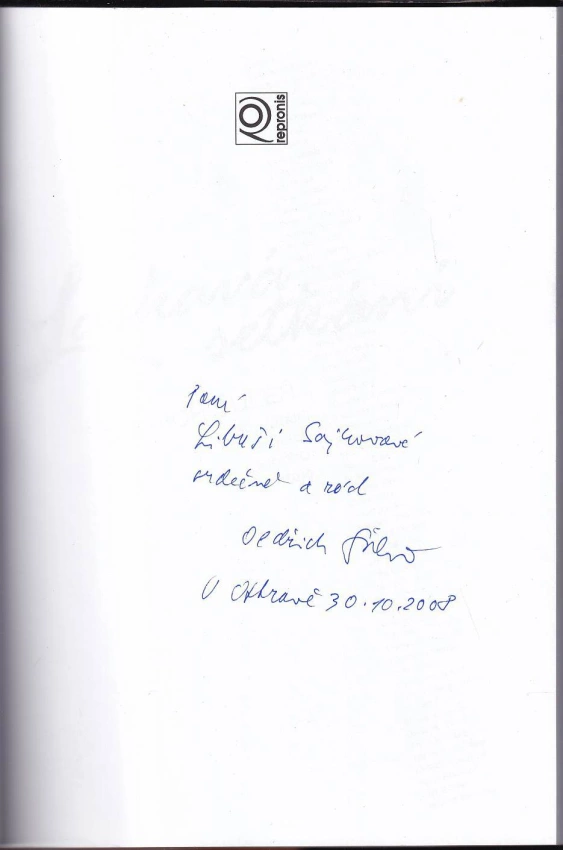 repronis
Paní
Libuši Sojkovové
srdečně a rád
Oldřich
V Ostravě 30.10.2008